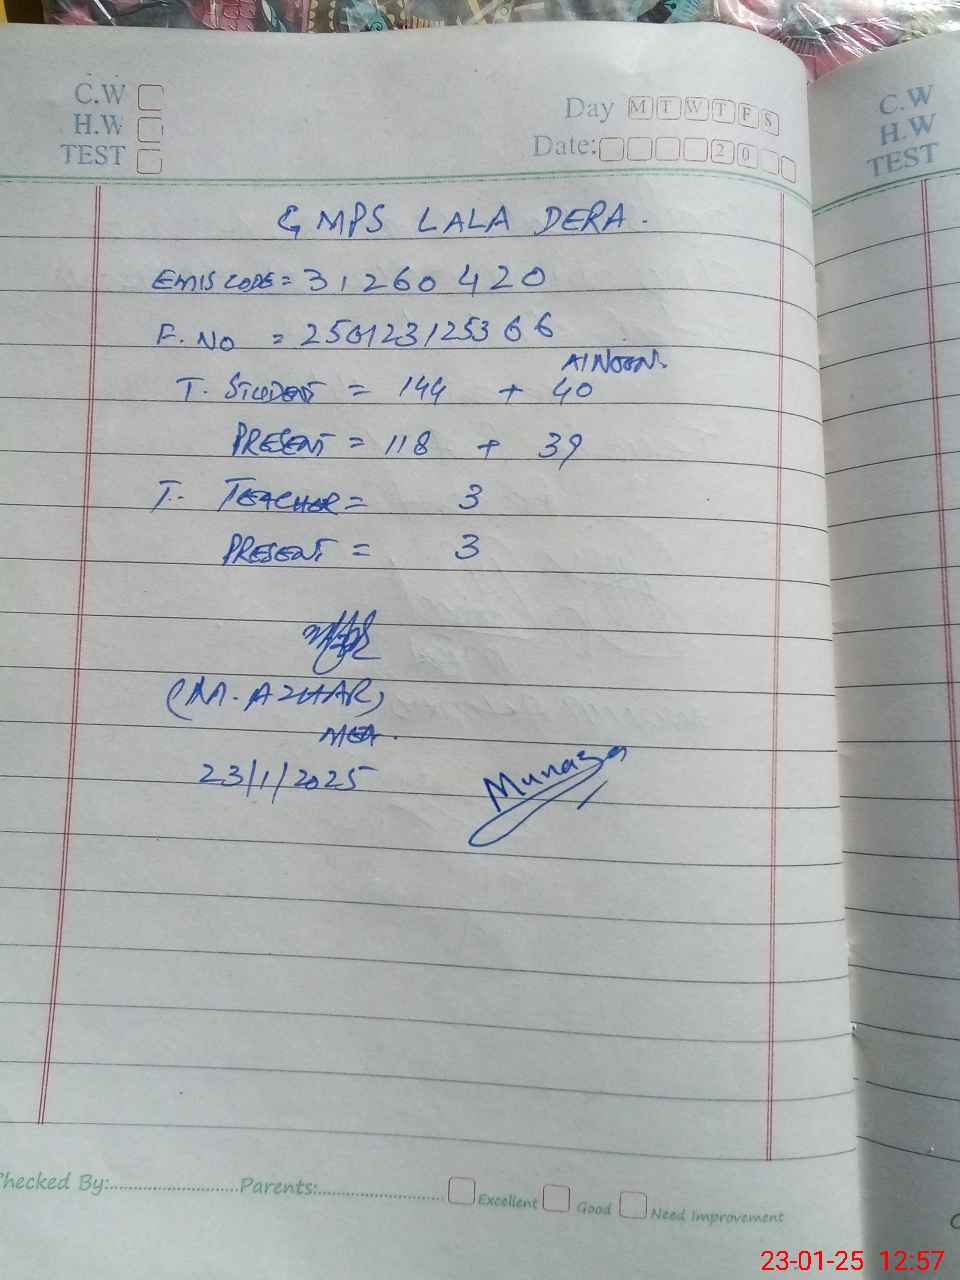 C.W
H.W
TEST
Day M T W T F S
Date: 2 0
C.W
H.W
TEST
GMPS LALA DERA.
EMIS CODE = 31260420
F. NO = 250123125366
AINOON.
T. STUDENT = 144 + 40
PRESENT = 118 + 39
T. TEACHER = 3
PRESENT = 3
(M. AZHAR)
MEA.
23/1/2025
Munaza
Checked By:..........................Parents:..........................Excellent Good Need Improvement
23-01-25 12:57